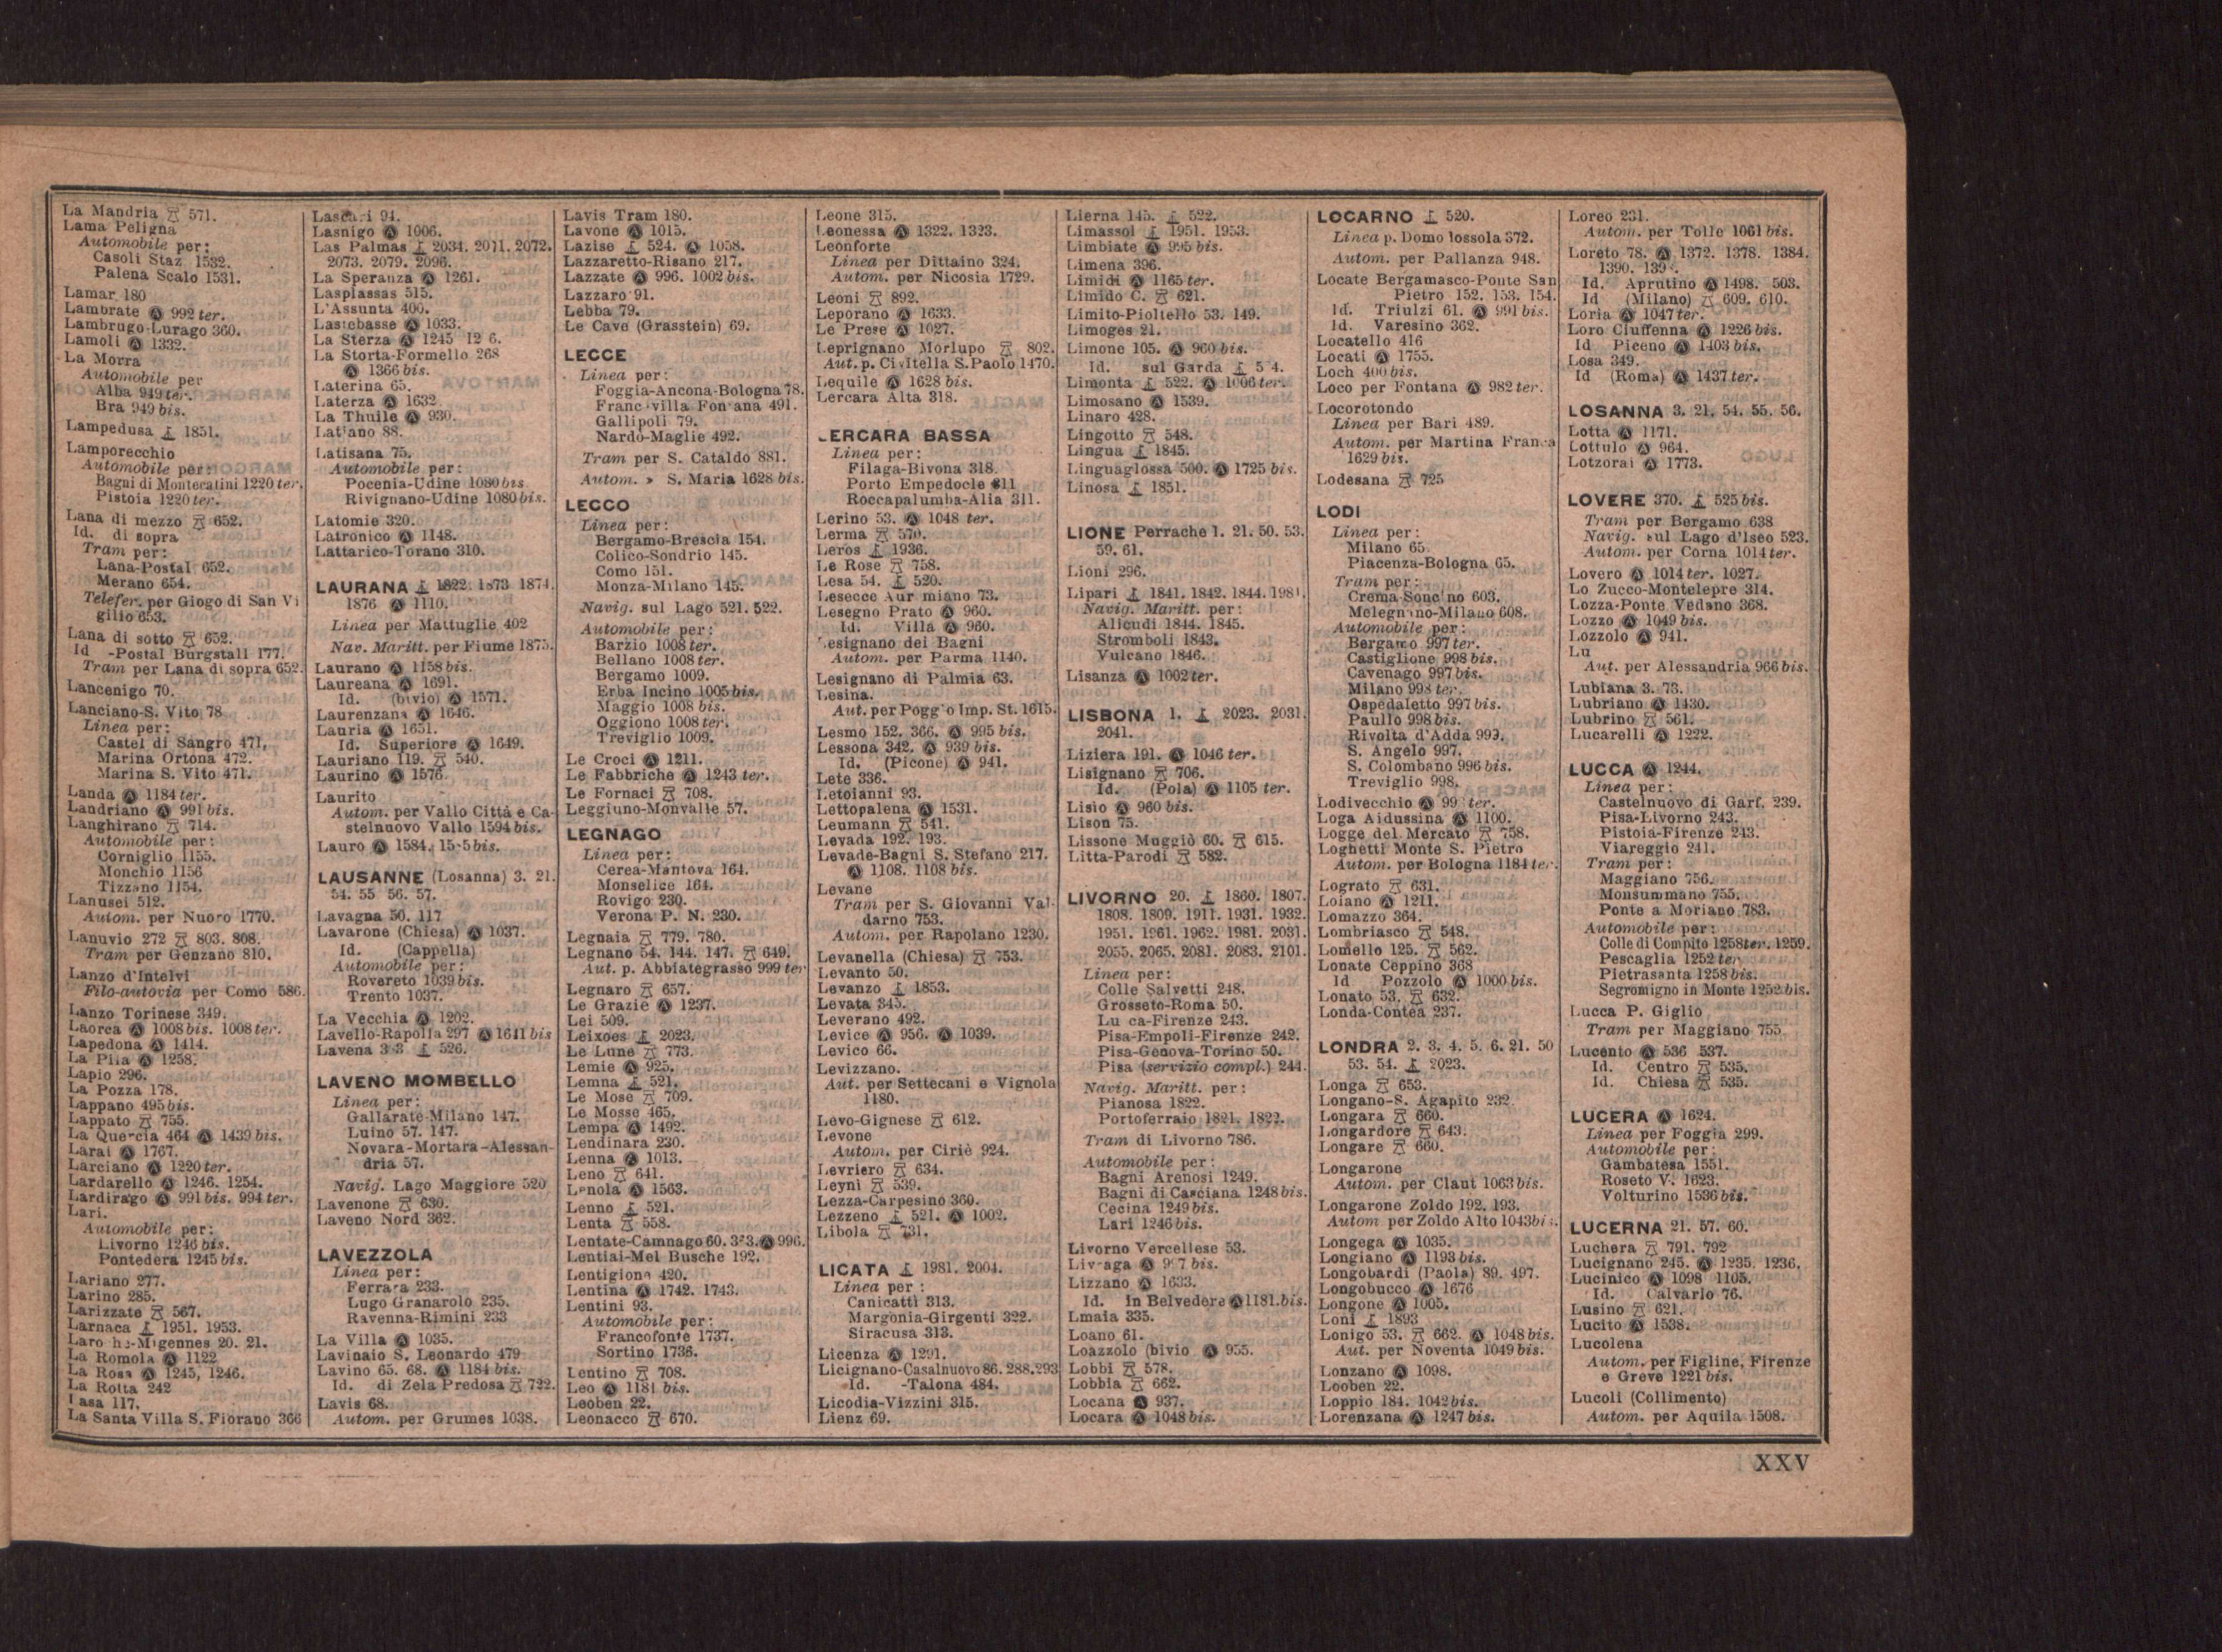 La Mandria 571.
Lama Peligna
Automobile per:
Casoli Staz 1532.
Palena Scalo 1531.
Lamar 180
Lambrate Ⓐ 992 ter.
Lambrugo-Lurago 360.
Lamoli Ⓐ 1332.
La Morra
Automobile per
Alba 949 ter.
Bra 949 bis.
Lampedusa 1851.
Lamporecchio
Automobile per:
Bagni di Montecatini 1220 ter.
Pistoia 1220 ter.
Lana di mezzo 652.
Id. di sopra
Tram per:
Lana-Postal 652.
Merano 654.
Telefer. per Giogo di San Vi
gilio 653.
Lana di sotto 652.
Id -Postal Burgstall 177.
Tram per Lana di sopra 652.
Lancenigo 70.
Lanciano-S. Vito 78
Linea per:
Castel di Sangro 471,
Marina Ortona 472.
Marina S. Vito 471.
Landa Ⓐ 1184 ter.
Landriano Ⓐ 991 bis.
Langhirano 714.
Automobile per:
Corniglio 1155.
Monchio 1156
Tizzano 1154.
Lanusei 512.
Autom. per Nuoro 1770.
Lanuvio 272 803. 808.
Tram per Genzano 810.
Lanzo d'Intelvi
Filo-autovia per Como 586.
Lanzo Torinese 349.
Laorca Ⓐ 1008 bis. 1008 ter.
Lapedona Ⓐ 1414.
La Pila Ⓐ 1258.
Lapio 296.
La Pozza 178.
Lappano 495 bis.
Lappato 755.
La Quercia 464 Ⓐ 1439 bis.
Larai Ⓐ 1767.
Larciano Ⓐ 1220 ter.
Lardarello Ⓐ 1246. 1254.
Lardirago Ⓐ 991 bis. 994 ter.
Lari.
Automobile per:
Livorno 1246 bis.
Pontedera 1245 bis.
Lariano 277.
Larino 285.
Larizzate 567.
Larnaca 1951. 1953.
Laro he-Migennes 20. 21.
La Romola Ⓐ 1122
La Rosa Ⓐ 1245, 1246.
La Rotta 242
Lasa 117.
La Santa Villa S. Fiorano 366
Lascari 94.
Lasnigo Ⓐ 1006.
Las Palmas 2034. 2011. 2072.
2073. 2079. 2096.
La Speranza Ⓐ 1261.
Lasplassas 515.
L'Assunta 406.
Lastebasse Ⓐ 1033.
La Sterza Ⓐ 1245
La Storta-Formello 268
Ⓐ 1366 bis.
Laterina 65.
Laterza Ⓐ 1632
La Thuile Ⓐ 930.
Latiano 88.
Latisana 75.
Automobile per:
Pocenia-Udine 1080 bis
Rivignano-Udine 1080 bis.
Latomie 320.
Latronico Ⓐ 1148.
Lattarico-Torano 310.
LAURANA 1822. 1873 1874.
1876 Ⓐ 1110.
Linea per Mattuglie 402
Nav. Maritt. per Fiume 1875.
Laurano Ⓐ 1158 bis.
Laureana Ⓐ 1691.
Id. (bivio) Ⓐ 1571.
Laurenzana Ⓐ 1646.
Lauria Ⓐ 1651.
Id. Superiore Ⓐ 1649.
Lauriano 119. 540.
Laurino Ⓐ 1576
Laurito
Autom. per Vallo Città e Ca-
stelnuovo Vallo 1594 bis.
Lauro Ⓐ 1584.
LAUSANNE (Losanna) 3. 21.
54. 55 56. 57.
Lavagna 50. 117
Lavarone (Chiesa) Ⓐ 1037.
Id. (Cappella)
Automobile per:
Rovereto 1039 bis.
Trento 1037.
La Vecchia Ⓐ 1202.
Lavello-Rapolla 297 Ⓐ 1641 bis
Lavena 526.
LAVENO MOMBELLO
Linea per:
Gallarate-Milano 147.
Luino 57. 147.
Novara-Mortara-Alessan-
dria 57.
Navig. Lago Maggiore 520
Lavenone 630.
Laveno Nord 362.
LAVEZZOLA
Linea per:
Ferrara 233.
Lugo Granarolo 235.
Ravenna-Rimini 233
La Villa Ⓐ 1035.
Lavinaio S. Leonardo 479
Lavino 65. 68. Ⓐ 1184 bis.
Id. di Zela Predosa 722.
Lavis 68.
Autom. per Grumes 1038.
Lavis Tram 180.
Lavone Ⓐ 1015.
Lazise 524. Ⓐ 1058.
Lazzaretto-Risano 217.
Lazzate Ⓐ 996. 1002 bis.
Lazzaro 91.
Lebba 79.
Le Cave (Grasstein) 69.
LECCE
Linea per:
Foggia-Ancona-Bologna 78.
Francavilla Fontana 491.
Gallipoli 79.
Nardò-Maglie 492.
Tram per S. Cataldo 881.
Autom. » S. Maria 1628 bis.
LECCO
Linea per:
Bergamo-Brescia 154.
Colico-Sondrio 145.
Como 151.
Monza-Milano 145.
Navig. sul Lago 521. 522.
Automobile per:
Barzio 1008 ter.
Bellano 1008 ter.
Bergamo 1009.
Erba Incino 1005 bis.
Maggio 1008 bis.
Oggiono 1008 ter.
Treviglio 1009.
Le Croci Ⓐ 1211.
Le Fabbriche Ⓐ 1243 ter.
Le Fornaci 708.
Leggiuno-Monvalle 57.
LEGNAGO
Linea per:
Cerea-Mantova 164.
Monselice 164.
Rovigo 230.
Verona P. N. 230.
Legnaia 779. 780.
Legnano 54. 144. 147. 649.
Aut. p. Abbiategrasso 999 ter
Legnaro 657.
Le Grazie Ⓐ 1237.
Lei 509.
Leixoes 2023.
Le Lune 773.
Lemie Ⓐ 925.
Lemna 521.
Le Mose 709.
Le Mosse 465.
Lempa Ⓐ 1492.
Lendinara 230.
Lenna Ⓐ 1013.
Leno 641.
Lenola Ⓐ 1563.
Lenno 521.
Lenta 558.
Lentate-Camnago 60. Ⓐ 996.
Lentiai-Mel Busche 192.
Lentigione 420.
Lentina Ⓐ 1742. 1743.
Lentini 93.
Automobile per:
Francofonte 1737.
Sortino 1736.
Lentino 708.
Leo Ⓐ 1181 bis.
Leoben 22.
Leonacco 670.
Leone 315.
Leonessa Ⓐ 1322. 1323.
Leonforte
Linea per Dittaino 324.
Autom. per Nicosia 1729.
Leoni 892.
Leporano Ⓐ 1633.
Le Prese Ⓐ 1027.
Leprignano Morlupo 802.
Aut. p. Civitella S. Paolo 1470.
Lequile Ⓐ 1628 bis.
Lercara Alta 318.
LERCARA BASSA
Linea per:
Filaga-Bivona 318.
Porto Empedocle 311
Roccapalumba-Alia 311.
Lerino 53. Ⓐ 1048 ter.
Lerma 570.
Leros 1936.
Le Rose 758.
Lesa 54. 520.
Lesecce Aurimiano 73.
Lesegno Prato Ⓐ 960.
Id. Villa Ⓐ 960.
Lesignano dei Bagni
Autom. per Parma 1140.
Lesignano di Palmia 63.
Lesina.
Aut. per Poggio Imp. St. 1615.
Lesmo 152. 366. Ⓐ 995 bis.
Lessona 342. Ⓐ 939 bis.
Id. (Picone) Ⓐ 941.
Lete 336.
Letoianni 93.
Lettopalena Ⓐ 1531.
Leumann 541.
Levada 192. 193.
Levade-Bagni S. Stefano 217.
Ⓐ 1108. 1108 bis.
Levane
Tram per S. Giovanni Val-
darno 753.
Autom. per Rapolano 1230.
Levanella (Chiesa) 753.
Levanto 50.
Levanzo 1853.
Levata 345.
Leverano 492.
Levice Ⓐ 956. Ⓐ 1039.
Levico 66.
Levizzano.
Aut. per Settecani e Vignola
1180.
Levo-Gignese 612.
Levone
Autom. per Ciriè 924.
Levriero 634.
Leyni 539.
Lezza-Carpesino 360.
Lezzeno 521. Ⓐ 1002.
Libola 731.
LICATA 1981. 2004.
Linea per:
Canicattì 313.
Margonia-Girgenti 322.
Siracusa 313.
Licenza Ⓐ 1291.
Licignano-Casalnuovo 86. 288. 293
Id. -Talona 484.
Licodia-Vizzini 315.
Lienz 69.
Lierna 145. 522.
Limassol 1951. 1953.
Limbiate Ⓐ 995 bis.
Limena 396.
Limidi Ⓐ 1165 ter.
Limido C. 621.
Limito-Pioltello 53. 149.
Limoges 21.
Limone 105. Ⓐ 960 bis.
Id. sul Garda
Limonta 522. Ⓐ 1006 ter.
Limosano Ⓐ 1539.
Linaro 428.
Lingotto 548.
Lingua 1845.
Linguaglossa 500. Ⓐ 1725 bis.
Linosa 1851.
LIONE Perrache 1. 21. 50. 53.
59. 61.
Lioni 296.
Lipari 1841. 1842. 1844. 1981.
Navig. Maritt. per:
Alicudi 1844. 1845.
Stromboli 1843.
Vulcano 1846.
Lisanza Ⓐ 1002 ter.
LISBONA 1. 2023. 2031.
2041.
Liziera 191. Ⓐ 1046 ter.
Lisignano 706.
Id. (Pola) Ⓐ 1105 ter.
Lisio Ⓐ 960 bis.
Lison 75.
Lissone Muggiò 60. 615.
Litta-Parodi 582.
LIVORNO 20. 1860. 1807.
1808. 1809. 1911. 1931. 1932.
1951. 1961. 1962. 1981. 2031.
2055. 2065. 2081. 2083. 2101.
Linea per:
Colle Salvetti 248.
Grosseto-Roma 50.
Lu ca-Firenze 243.
Pisa-Empoli-Firenze 242.
Pisa-Genova-Torino 50.
Pisa (servizio compl.) 244.
Navig. Maritt. per:
Pianosa 1822.
Portoferraio 1821. 1822.
Tram di Livorno 786.
Automobile per:
Bagni Arenosi 1249.
Bagni di Casciana 1248 bis.
Cecina 1249 bis.
Lari 1246 bis.
Livorno Vercellese 53.
Livraga Ⓐ bis.
Lizzano Ⓐ 1633.
Id. in Belvedere Ⓐ 1181. bis.
Lmaia 335.
Loano 61.
Loazzolo (bivio Ⓐ 955.
Lobbi 578.
Lobbia 662.
Locana Ⓐ 937.
Locara Ⓐ 1048 bis.
LOCARNO 520.
Linea p. Domodossola 372.
Autom. per Pallanza 948.
Locate Bergamasco-Ponte San
Pietro 152. 153. 154.
Id. Triulzi 61. Ⓐ 991 bis.
Id. Varesino 362.
Locatello 416
Locati Ⓐ 1755.
Loch 400 bis.
Loco per Fontana Ⓐ 982 ter.
Locorotondo
Linea per Bari 489.
Autom. per Martina Franca
1629 bis.
Lodesana 725
LODI
Linea per:
Milano 65
Piacenza-Bologna 65.
Tram per:
Crema-Soncino 603.
Melegnano-Milano 608.
Automobile per:
Bergamo 997 ter.
Castiglione 998 bis.
Cavenago 997 bis.
Milano 998 ter.
Ospedaletto 997 bis.
Paullo 998 bis.
Rivolta d'Adda 999.
S. Angelo 997.
S. Colombano 996 bis.
Treviglio 998.
Lodivecchio Ⓐ ter.
Loga Aidussina Ⓐ 1100.
Logge del Mercato 758.
Loghetti Monte S. Pietro
Autom. per Bologna 1184 ter.
Lograto 631.
Loiano Ⓐ 1211.
Lomazzo 364.
Lombriasco 548.
Lomello 125. 562.
Lonate Ceppino 368
Id Pozzolo Ⓐ 1000 bis.
Lonato 53. 632.
Londa-Contea 237.
LONDRA 2. 3. 4. 5. 6. 21. 50
53. 54. 2023.
Longa 653.
Longano-S. Agapito 232
Longara 660.
Longardore 643.
Longare 660.
Longarone
Autom. per Claut 1063 bis.
Longarone Zoldo 192. 193.
Autom per Zoldo Alto 1043 bis.
Longega Ⓐ 1035.
Longiano Ⓐ 1193 bis.
Longobardi (Paola) 89. 497.
Longobucco Ⓐ 1676
Longone Ⓐ 1005.
Loni 1893
Lonigo 53. 662. Ⓐ 1048 bis.
Aut. per Noventa 1049 bis.
Lonzano Ⓐ 1098.
Looben 22.
Loppio 184. 1042 bis.
Lorenzana Ⓐ 1247 bis.
Loreo 231.
Autom. per Tolle 1061 bis.
Loreto 78. Ⓐ 1372. 1378. 1384.
1390.
Id. Aprutino Ⓐ 1498. 503.
Id (Milano) 609. 610.
Loria Ⓐ 1047 ter.
Loro Ciuffenna Ⓐ 1226 bis.
Id Piceno Ⓐ 1403 bis.
Losa 349.
Id (Roma) Ⓐ 1437 ter.
LOSANNA 3. 21. 54. 55. 56.
Lotta Ⓐ 1171.
Lottulo Ⓐ 964.
Lotzorai Ⓐ 1773.
LOVERE 370. 525 bis.
Tram per Bergamo 638
Navig. sul Lago d'Iseo 523.
Autom. per Corna 1014 ter.
Lovero Ⓐ 1014 ter. 1027.
Lo Zucco-Montelepre 314.
Lozza-Ponte Vedano 368.
Lozzo Ⓐ 1049 bis.
Lozzolo Ⓐ 941.
Lu
Aut. per Alessandria 966 bis.
Lubiana 3. 73.
Lubriano Ⓐ 1430.
Lubrino 561.
Lucarelli Ⓐ 1222.
LUCCA Ⓐ 1244.
Linea per:
Castelnuovo di Garf. 239.
Pisa-Livorno 243.
Pistoia-Firenze 243.
Viareggio 241.
Tram per:
Maggiano 756.
Monsummano 755.
Ponte a Moriano 783.
Automobile per:
Colle di Compito 1258 ter. 1259.
Pescaglia 1252 ter
Pietrasanta 1258 bis.
Segromigno in Monte 1252 bis.
Lucca P. Giglio
Tram per Maggiano 755
Lucento Ⓐ 536 537.
Id. Centro 535.
Id. Chiesa 535.
LUCERA Ⓐ 1624.
Linea per Foggia 299.
Automobile per:
Gambatesa 1551.
Roseto V. 1623.
Volturino 1536 bis.
LUCERNA 21. 57. 60.
Luchera 791. 792
Lucignano 245. Ⓐ 1235. 1236.
Lucinico Ⓐ 1098 1105.
Id. Calvario 76.
Lusino 621.
Lucito Ⓐ 1538.
Lucolena
Autom. per Figline, Firenze
e Greve 1221 bis.
Lucoli (Collimento)
Autom. per Aquila 1508.
XXV